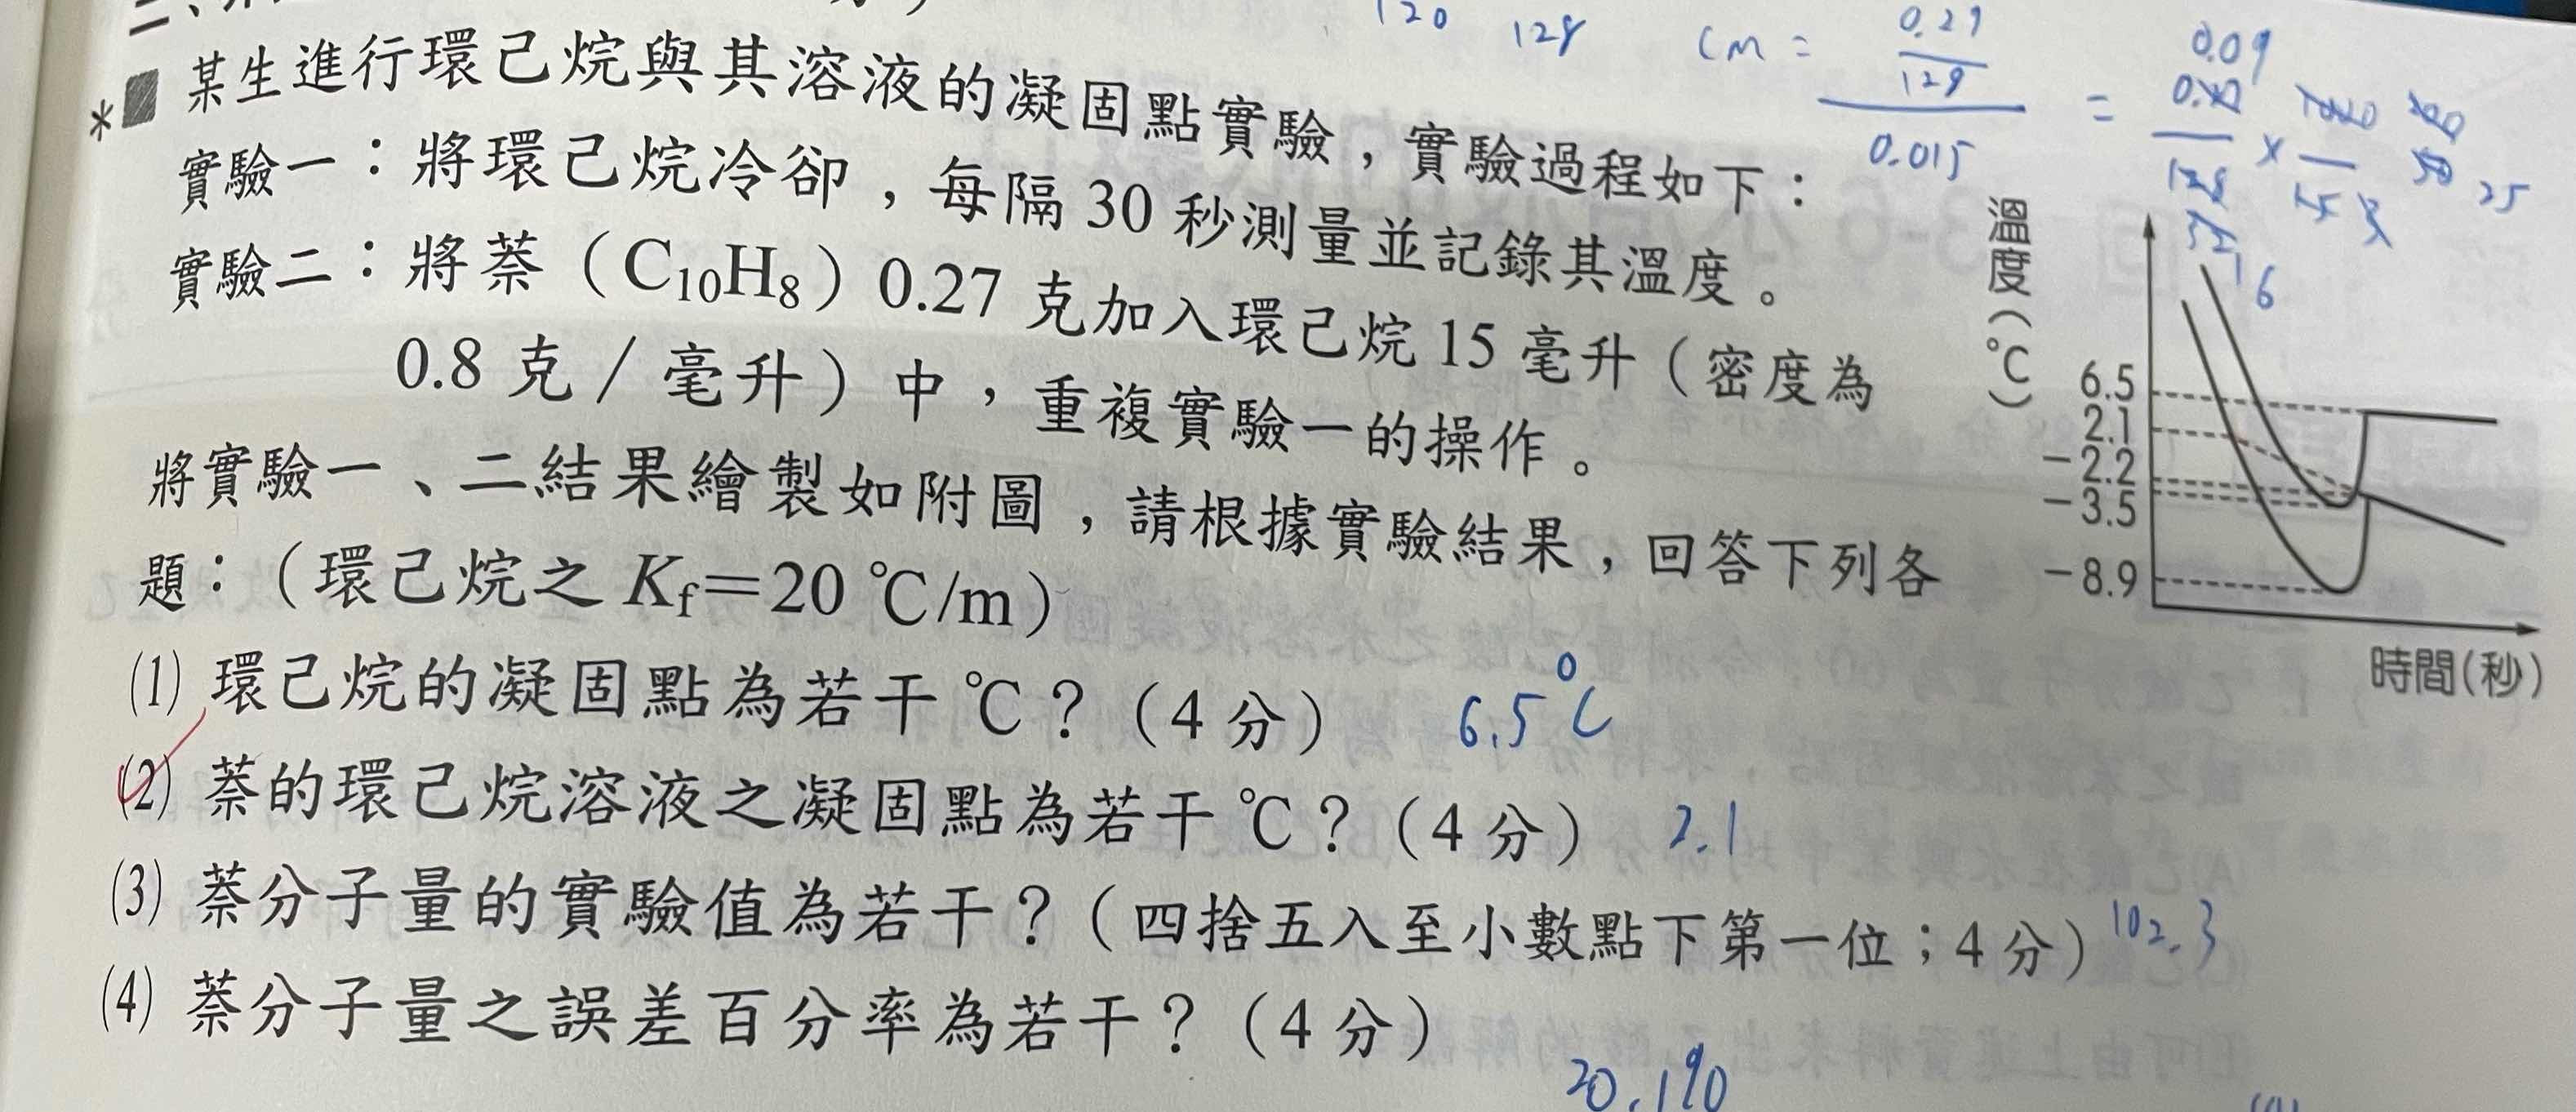 120 128 Cm = 0.27/128 / 0.015 = 0.09
某生進行環己烷與其溶液的凝固點實驗，實驗過程如下：
實驗一：將環己烷冷卻，每隔 30 秒測量並記錄其溫度。
實驗二：將萘（C₁₀H₈）0.27 克加入環己烷 15 毫升（密度為
0.8 克／毫升）中，重複實驗一的操作。
將實驗一、二結果繪製如附圖，請根據實驗結果，回答下列各
題：（環己烷之 Kf＝20 ℃/m）
(1) 環己烷的凝固點為若干 ℃？（4 分） 6.5℃
(2) 萘的環己烷溶液之凝固點為若干 ℃？（4 分） 2.1
(3) 萘分子量的實驗值為若干？（四捨五入至小數點下第一位；4 分） 102.3
(4) 萘分子量之誤差百分率為若干？（4 分）
20.1%
溫度(℃)
6.5
2.1
－2.2
－3.5
－8.9
時間(秒)
25
16